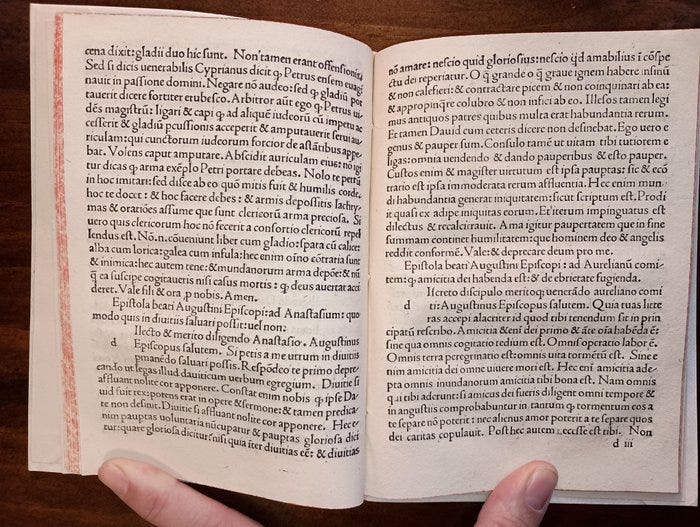 cena dixit: gladii duo hic sunt. Non tamen erant offensionis
Sed si dicis uenerabilis Cyprianus dicit ꝙ Petrus ensem euagi
nauit in passione domini. Negare nō audeo: sed ꝙ gladiū pot
tauerit dicere fortiter erubesco. Arbitror aūt ego ꝙ Petrus ui
dēs magistrū: ligari & capi ꝙ ad aliquē iudeorū cū impetu ac
cesserit & gladiū ꝑcussionis acceperit & amputauerit serui au
riculam: qui cunctorum iudeorum forcior de astātibus appe
bat. Volens caput amputare. Abscidit auriculam eius: nō igi
tur dicas ꝙ arma exēplo Petri portare debeas. Nolo te petrū
in hoc imitari: sed disce ab eo quō mitis fuit & humilis corde.
hoc te docet: & hoc facere debes: & armis depositis lachry
mas & oratiōes assume que sunt clericorū arma preciosa. Si
uero quis clericorum hoc nō fecerit a consortio clericorū repel
lendus est. Nō.n. cōueniunt liber cum gladio: spata cū calice:
alba cum lorica: galea cum insula: hec enim oīno cōtraria sunt
& inimica: hec autem tene: & mundanorum arma depōe: & nū
q̄ ea suscipe cogitaueris nisi casus mortis: ꝙ deus auertat acci
deret. Vale fili & ora ꝓ nobis. Amen.
Epistola beati Augustini Episcopi: ad Anastasium: quo
modo quis in diuitiis saluari possit: uel non:
d Ilecto & merito diligendo Anastasio. Augustinus
Episcopus salutem. Si petis a me utrum in diuitiis
ꝑmanēdo saluari possit. Respōdeo te primo depre
cando ut legas illud dauiticum uerbum egregium. Diuitie si
affluant nolite cor apponere. Constat enim nobis ꝙ ipse Da
uid fuit rex: potens erat in opere & sermone: & tamen predica
te non desinit. Diuitie si affluant nolite cor apponere. Hec e
nim pauptas uoluntaria nūcupatur & pauptas gloriosa dici
tur: quare gloriosa dicitur nisi quia iter diuitias eē: & diuitias
nō amare: nescio quid gloriosius: nescio qd amabilius ī cōspe
ctu dei reperiatur. O q̄ grande o q̄ graue ignem habere in sinū
& non calefieri: & contractare picem & non coinquinari ab ea:
& appropinq̄re colubro & non infici ab eo. Illesos tamen legi
mus antiquos patres quibus multa erat habundantia rerum.
Et tamen Dauid cum ceteris dicere non desinebat. Ego uero e
genus & pauper sum. Consulo tamē ut uitam tibi tutiorem e
ligas: omnia uendendo & dando pauperibus & esto pauper.
Custos enim & magister uirtutum est ipsa pauptas: sic & ecō
trario est ipsa immoderata rerum affluentia. Hec enim mun
di habundantia generat iniquitatem: sicut scriptum est. Prodi
it quasi ex adipe iniquitas eorum. Et iterum impinguatus est
dilectus & recalcitrauit. Ama igitur paupertatem que in sine
summam continet humilitatem: que hominem deo & angelis
reddit conformē. Vale: & deprecare deum pro me.
Epistola beati Augustini Episcopi: ad Aurelianū comi
tem: ꝙ amicitia dei habenda est: & de ebrietate fugienda.
d Iscreto discipulo meritoq; uenerādo aureliano comi
ti: Augustinus Episcopus salutem. Quia tuas litte
ras accepi alaciter id quod tibi tenendum sit in prin
cipatū rescribo. Amicitia &eni dei primo & āte oīa habēda ēst
sine qua omnis cogitatio tedium est. Omnis operatio labor ē.
Omnis terra peregrinatio est: omnis uita tormētū est. Sine e
nim amicitia dei omne uiuere mori est. Hec eni amicitia ade
pta omnis inundanorum amicitia tibi bona est. Nam omnis
qui tibi aderunt: si amicus dei fueris diligent omni tempore &
in angustiis comprobabuntur in tantum ꝙ tormentum eos a
te separe nō poterit: nec alienus amor poterit a te separe quos
dei caritas copulauit. Post hec autem necesse est tibi. Non
d iii